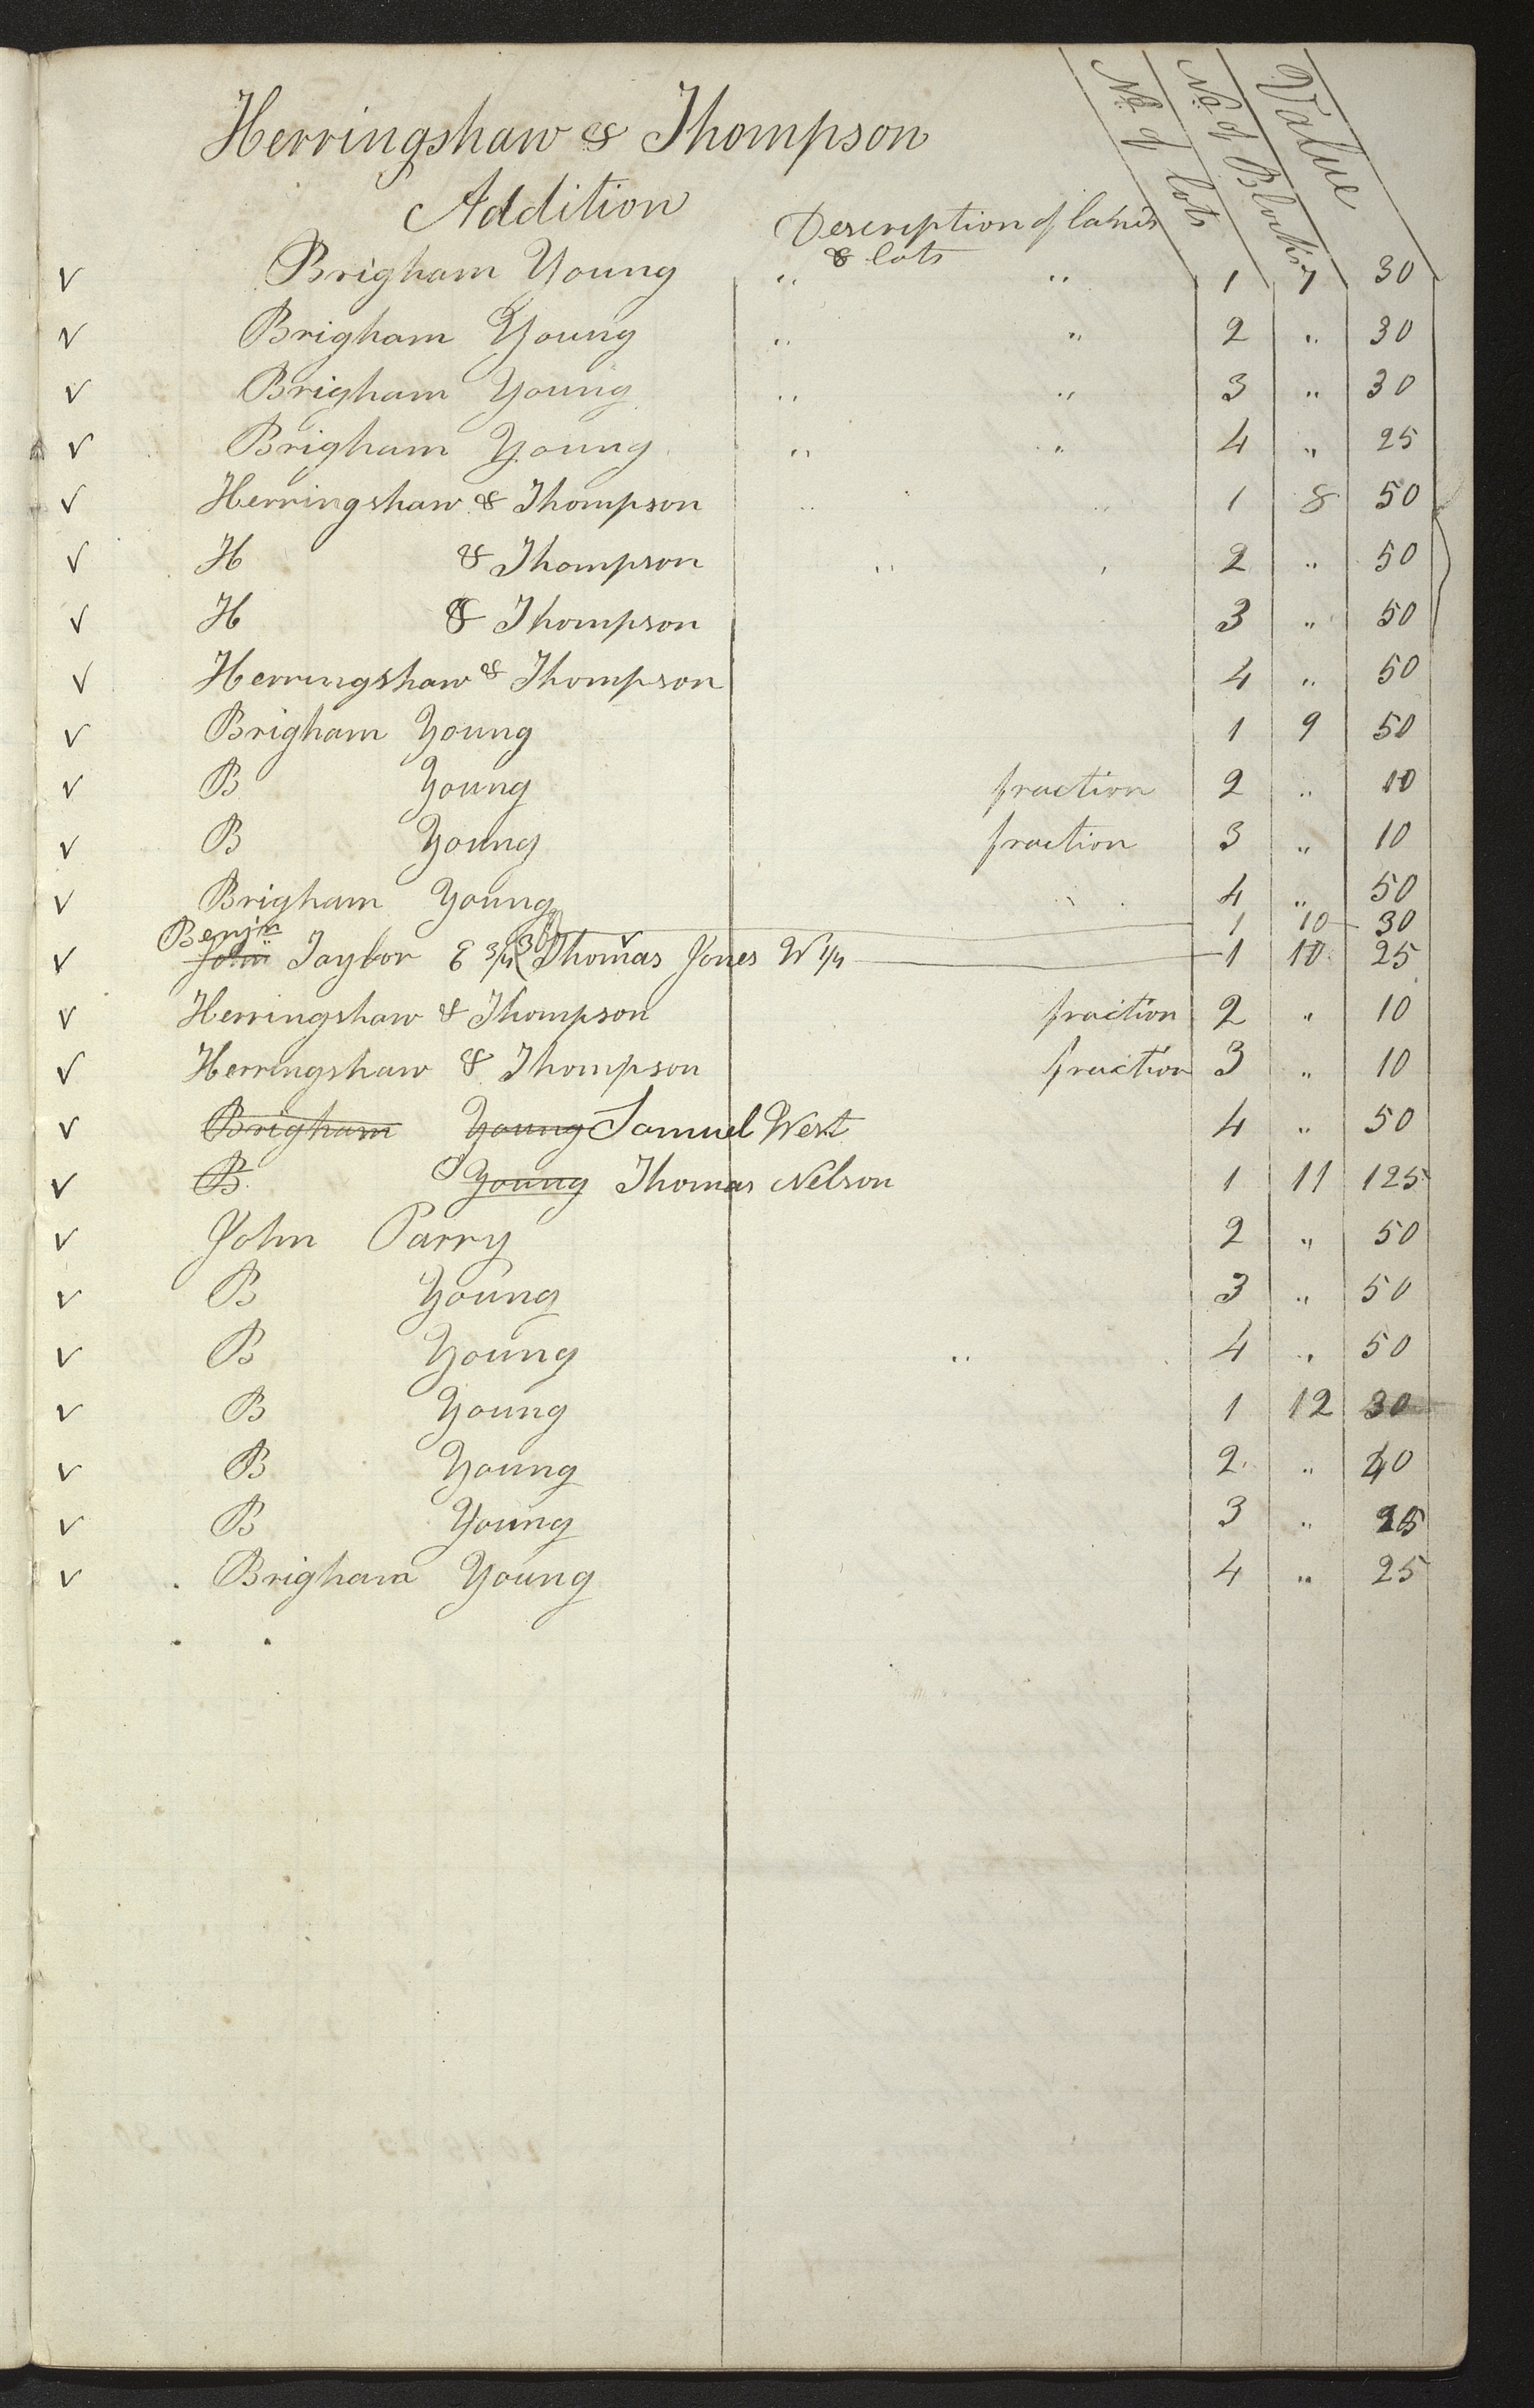 Herringshaw & Thompson
Addition
Description of lands
& lots
No. of lots
No. of Blocks
Value
√ Brigham Young " " 1 7 30
√ Brigham Young " " 2 " 30
√ Brigham Young " " 3 " 30
√ Brigham Young " " 4 " 25
√ Herringshaw & Thompson " " 1 8 50
√ H & Thompson " " 2 " 50
√ H & Thompson 3 " 50
√ Herringshaw & Thompson 4 " 50
√ Brigham Young 1 9 50
√ B Young fraction 2 " 10
√ B Young fraction 3 " 10
√ Brigham Young 4 " 50
1 10 30
Benjn
√ John Taylor E 3/4 Thomas Jones W 1/4 1 10 25
√ Herringshaw & Thompson fraction 2 " 10
√ Herringshaw & Thompson fraction 3 " 10
√ Brigham Young Samuel West 4 " 50
√ B. Young Thomas Nelson 1 11 125
√ John Parry 2 " 50
√ B Young 3 " 50
√ B Young " 4 " 50
√ B Young 1 12 30
√ B Young 2 " 40
√ B Young 3 "
√ Brigham Young 4 " 25